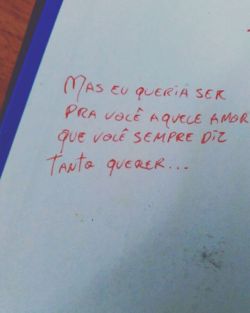 Mas eu queria ser
pra você aquele amor
que você sempre diz
tanto querer...